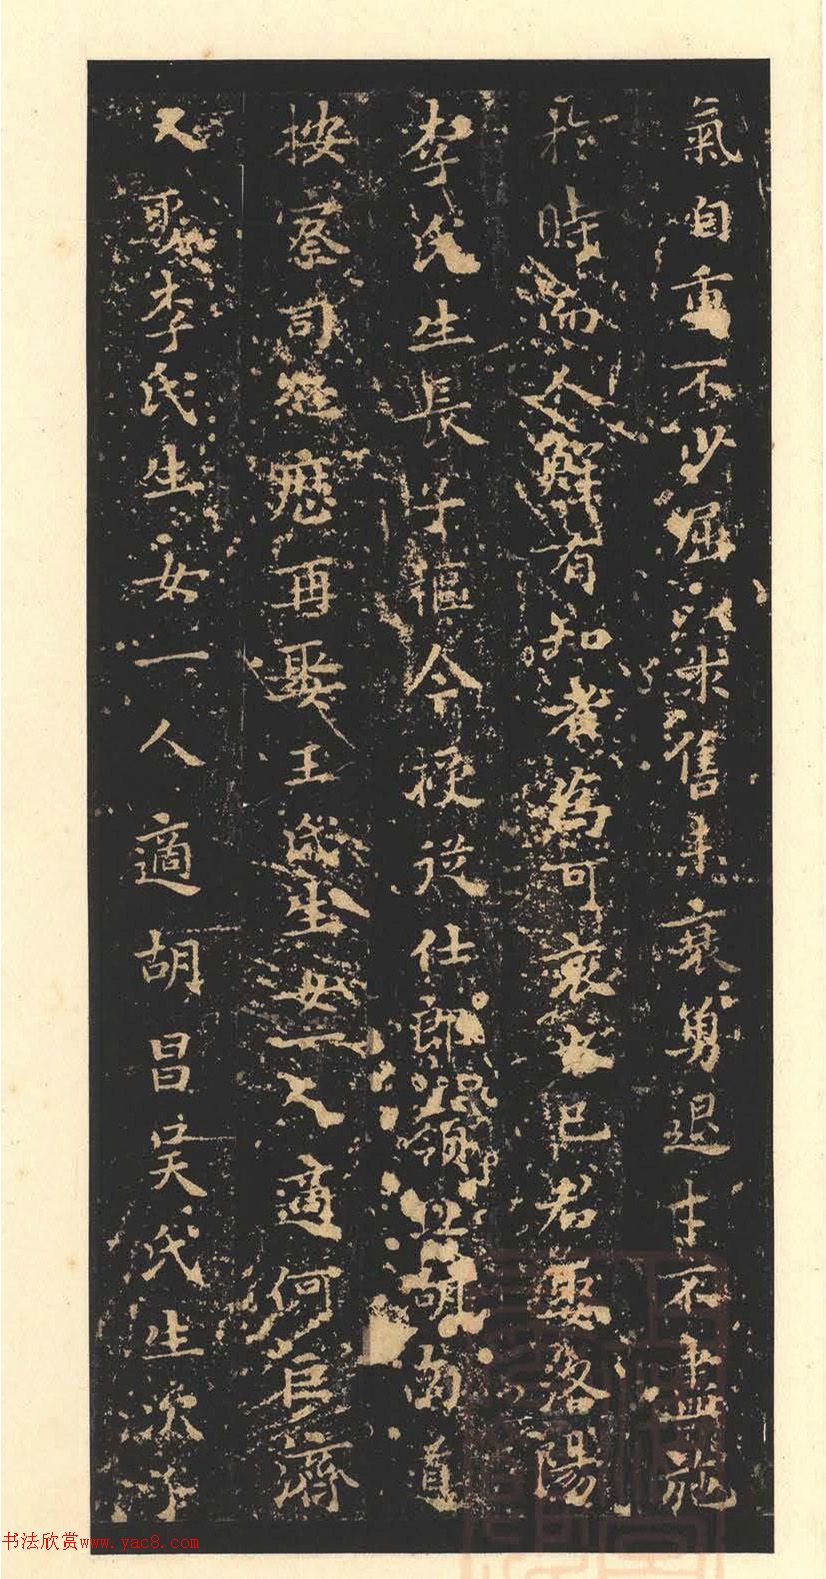 氣自重不少屈以求售未衰勇退才不盡施
於時而人鮮有知者為可哀也已君娶洛陽
李氏生長子樞今授從仕郎湖南道
按察司照磨再娶王氏生女一人適何巨濟
又娶李氏生女一人適胡昌吳氏生次子
书法欣赏www.yac8.com